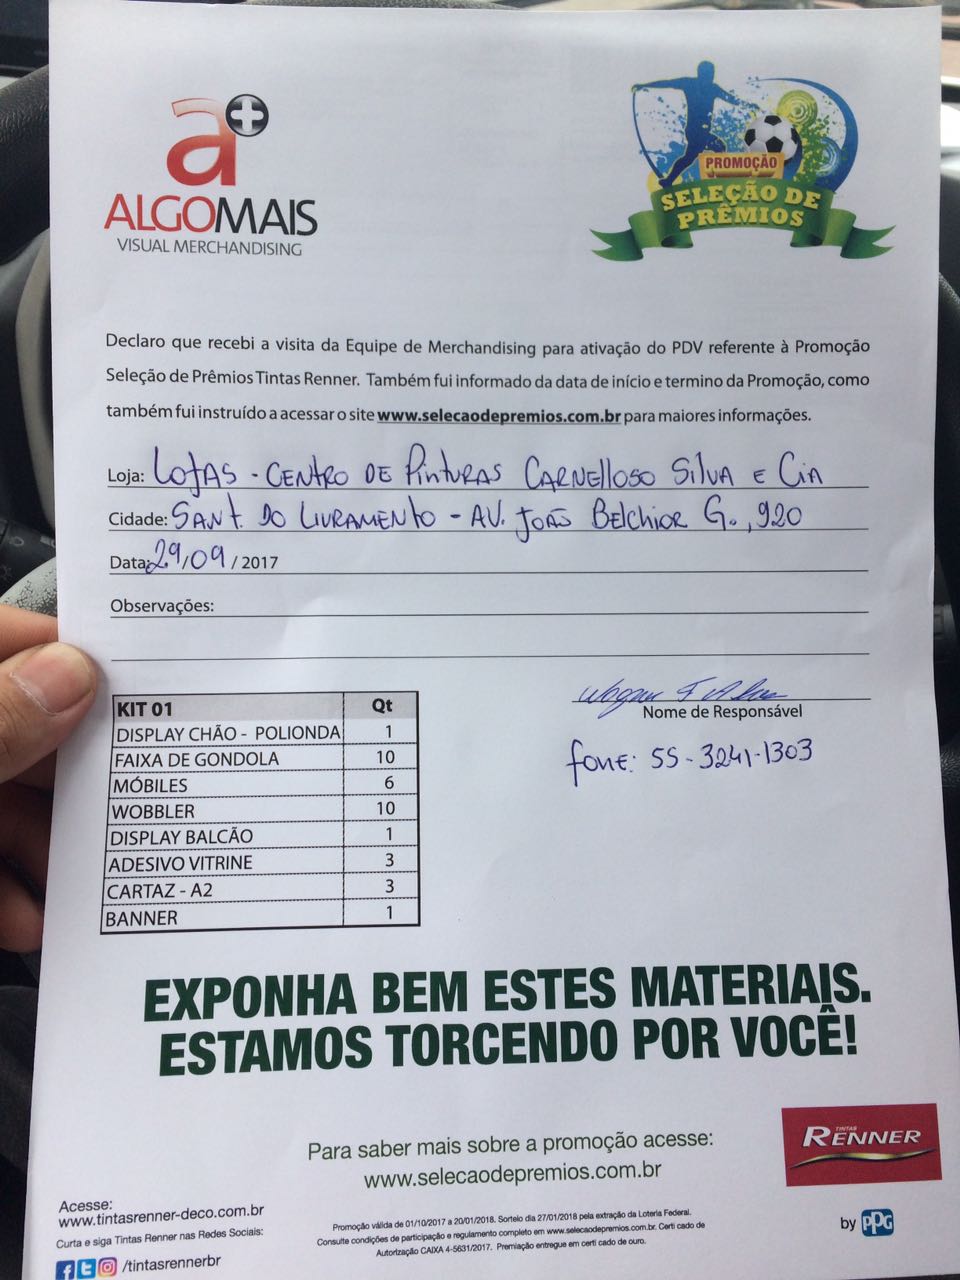 a+
ALGOMAIS
VISUAL MERCHANDISING
PROMOÇÃO
SELEÇÃO DE
PRÊMIOS
Declaro que recebi a visita da Equipe de Merchandising para ativação do PDV referente à Promoção
Seleção de Prêmios Tintas Renner. Também fui informado da data de início e termino da Promoção, como
também fui instruído a acessar o site www.selecaodepremios.com.br para maiores informações.
Loja: LOJAS - CENTRO DE PINTURAS CARNELLOSO SILVA E CIA
Cidade: SANT. DO LIVRAMENTO - AV. JOÃO BELCHIOR G., 920
Data: 29/09 / 2017
Observações:
Nome de Responsável
fone: 55-3241-1303
KIT 01 Qt
DISPLAY CHÃO - POLIONDA 1
FAIXA DE GONDOLA 10
MÓBILES 6
WOBBLER 10
DISPLAY BALCÃO 1
ADESIVO VITRINE 3
CARTAZ - A2 3
BANNER 1
EXPONHA BEM ESTES MATERIAIS.
ESTAMOS TORCENDO POR VOCÊ!
Para saber mais sobre a promoção acesse:
www.selecaodepremios.com.br
TINTAS
RENNER
by PPG
Acesse:
www.tintasrenner-deco.com.br
Curta e siga Tintas Renner nas Redes Sociais:
/tintasrennerbr
Promoção válida de 01/10/2017 a 20/01/2018. Sorteio dia 27/01/2018 pela extração da Loteria Federal.
Consulte condições de participação e regulamento completo em www.selecaodepremios.com.br. Certi cado de
Autorização CAIXA 4-5631/2017. Premiação entregue em certi cado de ouro.